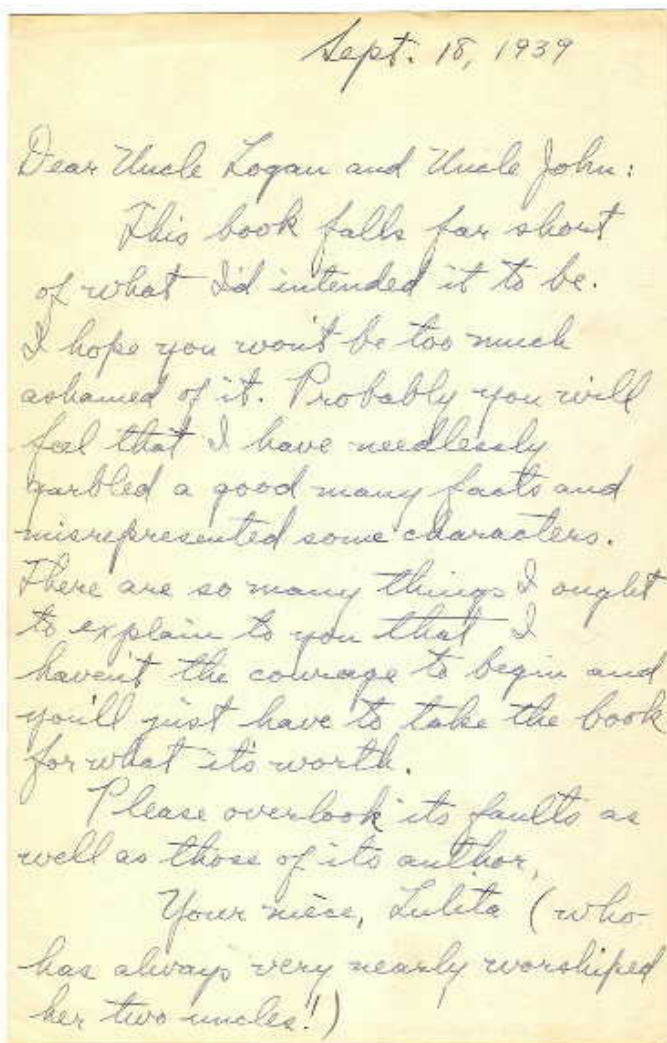 Sept. 18, 1939
Dear Uncle Logan and Uncle John:
This book falls far short
of what I'd intended it to be.
I hope you won't be too much
ashamed of it. Probably you will
feel that I have needlessly
garbled a good many facts and
misrepresented some characters.
There are so many things I ought
to explain to you that I
haven't the courage to begin and
you'll just have to take the book
for what it's worth.
Please overlook its faults as
well as those of its author,
Your niece, Lulita (who
has always very nearly worshiped
her two uncles!!)